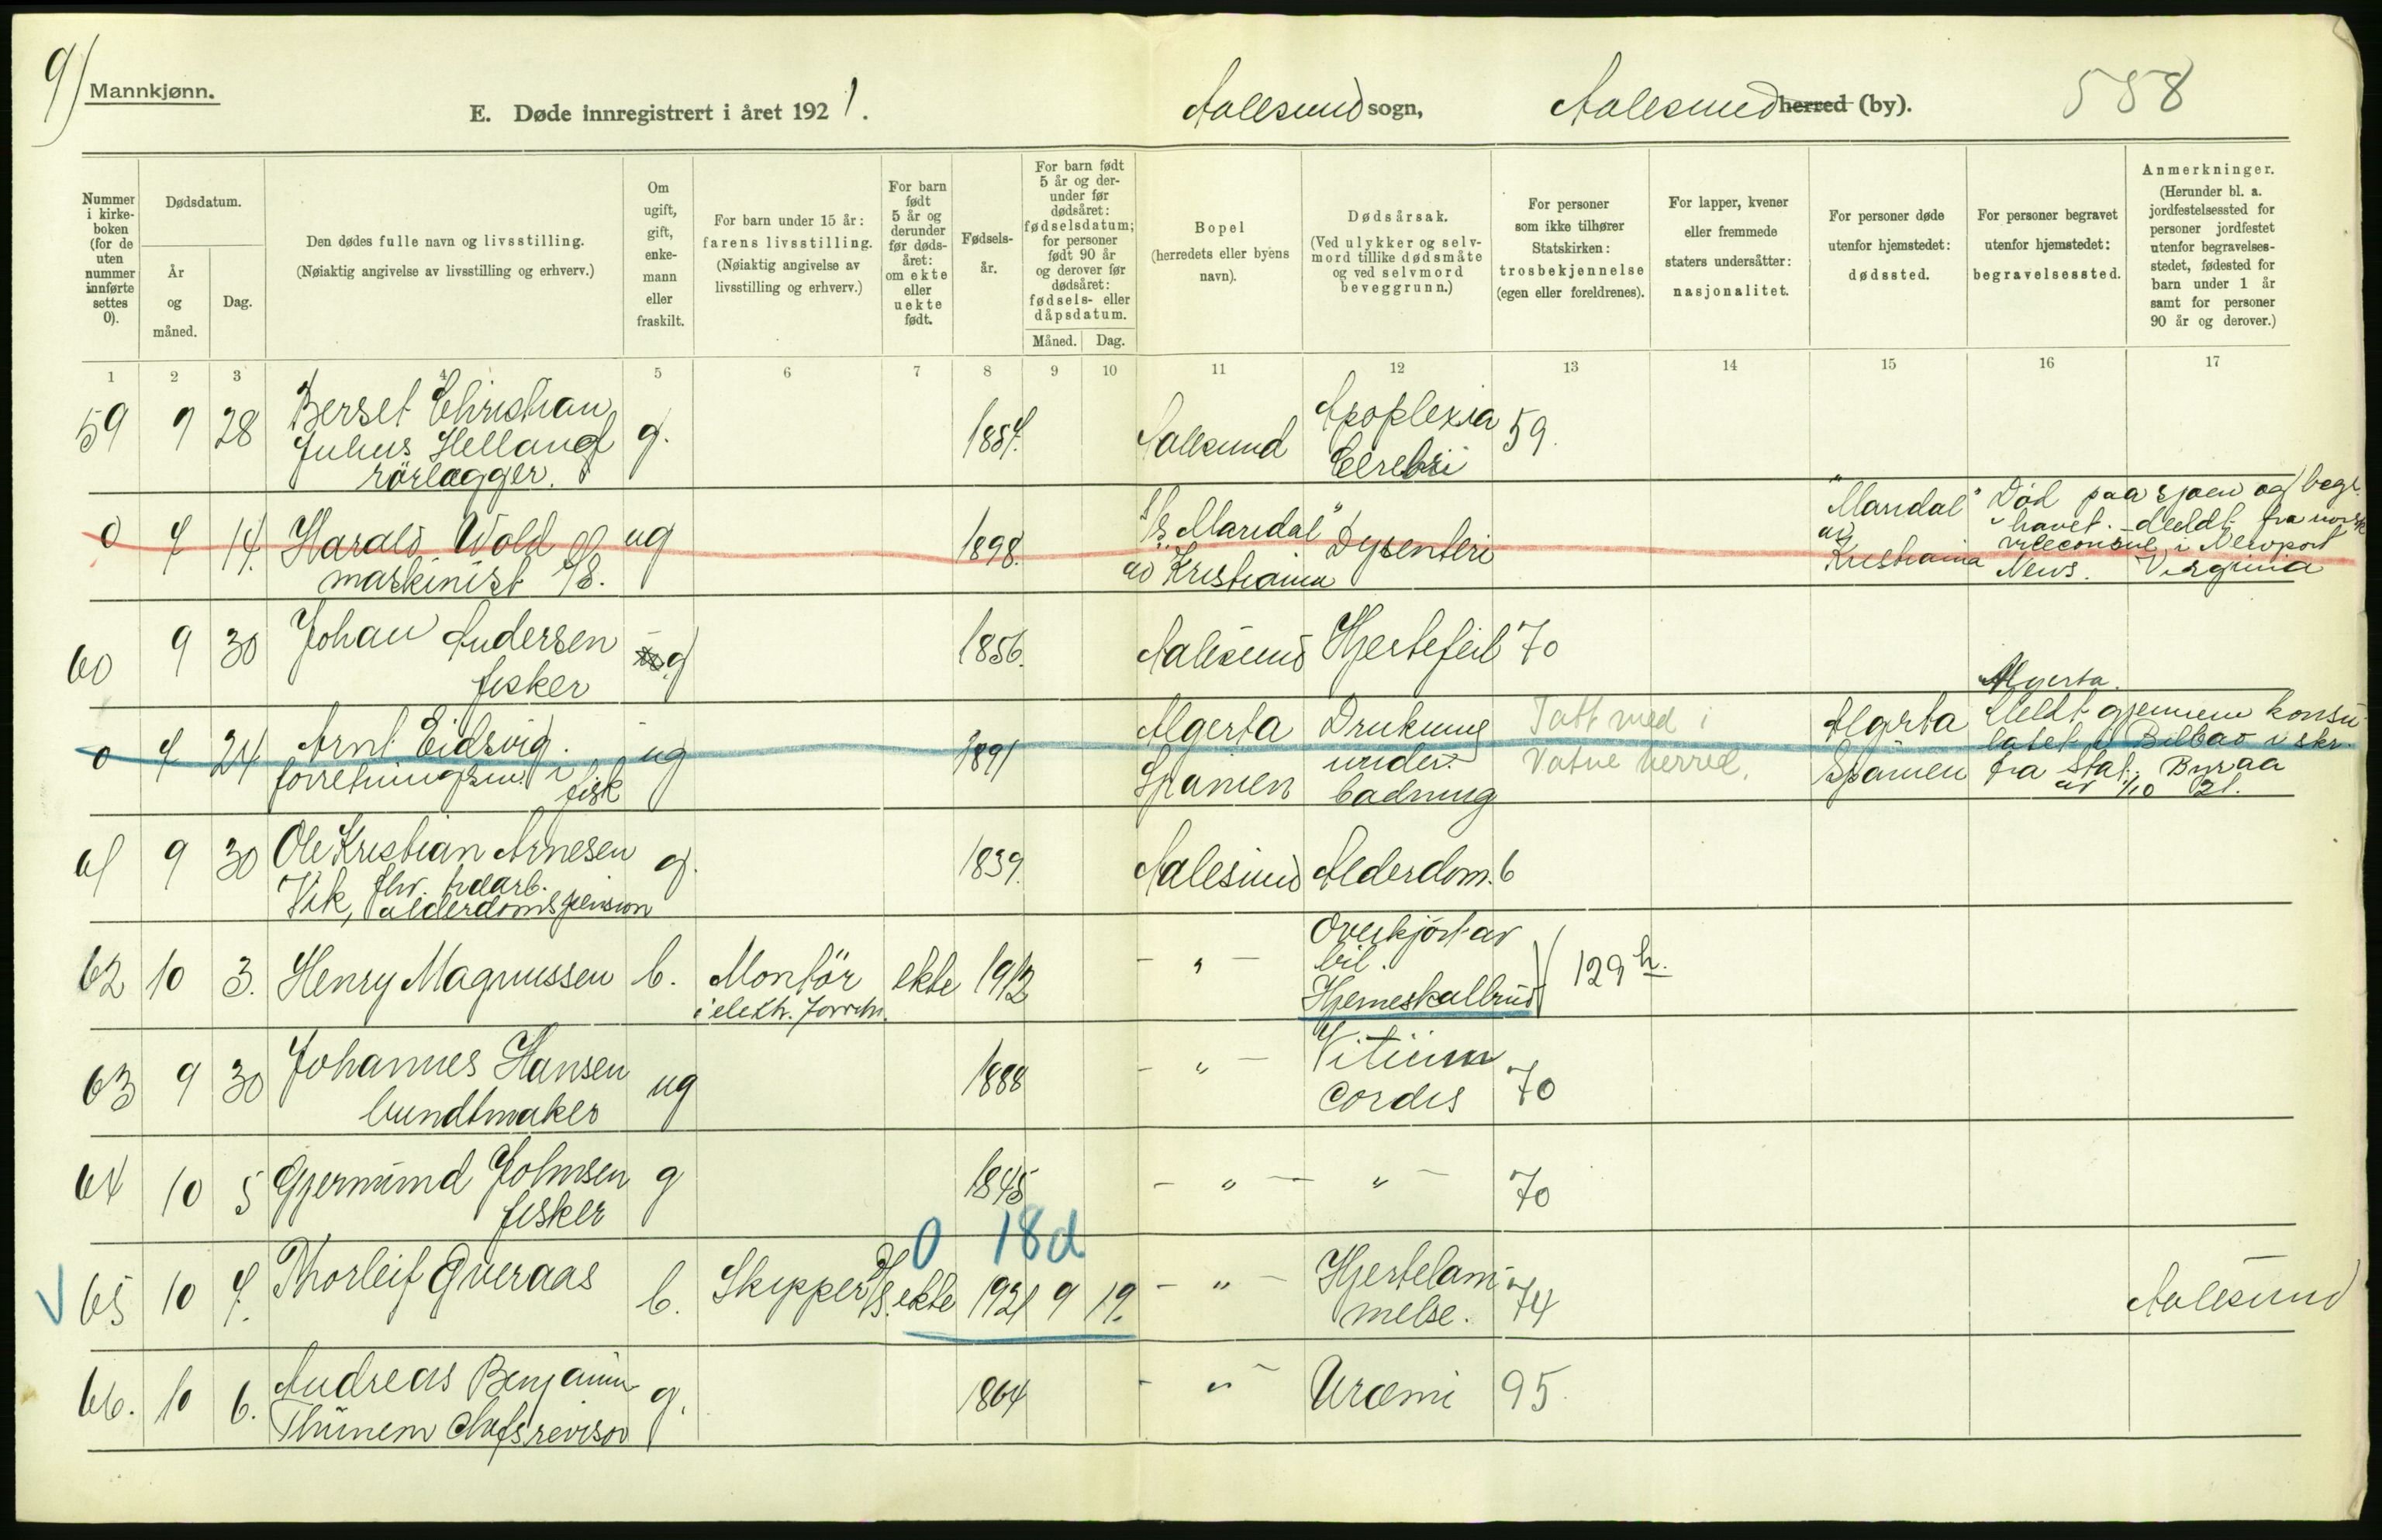 9)
Mannkjønn.
E. Døde innregistrert i året 1921.
Aalesund sogn,
Aalesund herred (by).
558
Nummer i kirke- boken (for de uten nummer innførte settes 0).
Dødsdatum.
År og måned.
Dag.
Den dødes fulle navn og livsstilling.
(Nøiaktig angivelse av livsstilling og erhverv.)
Om ugift, gift, enke- mann eller fraskilt.
For barn under 15 år:
farens livsstilling.
(Nøiaktig angivelse av livsstilling og erhverv.)
For barn født 5 år og derunder før døds- året: om ekte eller uekte født.
Fødsels- år.
For barn født 5 år og der- under før dødsåret: fødselsdatum; for personer født 90 år og derover før dødsåret: fødsels- eller dåpsdatum.
Måned.
Dag.
Bopel
(herredets eller byens navn).
Dødsårsak.
(Ved ulykker og selv- mord tillike dødsmåte og ved selvmord beveggrunn.)
For personer som ikke tilhører Statskirken: trosbekjennelse (egen eller foreldrenes).
For lapper, kvener eller fremmede staters undersåtter: nasjonalitet.
For personer døde utenfor hjemstedet: dødssted.
For personer begravet utenfor hjemstedet: begravelsessted.
Anmerkninger.
(Herunder bl. a. jordfestelsessted for personer jordfestet utenfor begravelses- stedet, fødested for barn under 1 år samt for personer 90 år og derover.)
1 2 3 4 5 6 7 8 9 10 11 12 13 14 15 16 17
59 9 28 Berset Christian g. 1857. Aalesund Apoplexia 59.
Julius Helland Cerebri
rörlægger.
0 7 14. Harald Wold ug 1898. S/s "Mandal" Dysenteri "Mandal" Död paa sjøen og begr.
maskinist S/S. av Kristiania av Kristiania i havet. Meldt fra norsk
viceconsul i Newport
News. Virginia
60 9 30 Johan Andersen g 1856. Aalesund Hjertefeil 70
fisker
Algerta.
0 7 24 Arnt Eidsvig. ug 1891 Algerta Drukning Tatt med i Algerta Meldt gjennem konsu-
forretningsm. i Spanien under Vatne herred. Spanien latet i Bilbao i skr.
fisk badning fra Stat. Byraa
av 1/10 21.
61 9 30 Ole Kristian Arnesen g. 1839. Aalesund Alderdom. 6
Vik, fhv. alderdomspension
62 10 3. Henry Magnussen b. Montör ekte 1912 - " - Overkjört av
i elektr. forretn. bil.
Hjerneskallbrud 129 h.
63 9 30 Johannes Hansen ug 1888 - " - Vitium
bundtmaker cordis 70
64 10 5 Gjermund Johnsen g 1845 - " - " - 70
fisker
0 18d
65 10 7. Thorleif Qveraas b. Skipper D/S. ekte 1921 9 19. - " - Hjertelam- 74 Aalesund
melse.
66. 10 6. Andreas Benjamin g. 1864 - " - Uræmi 95.
Thunem